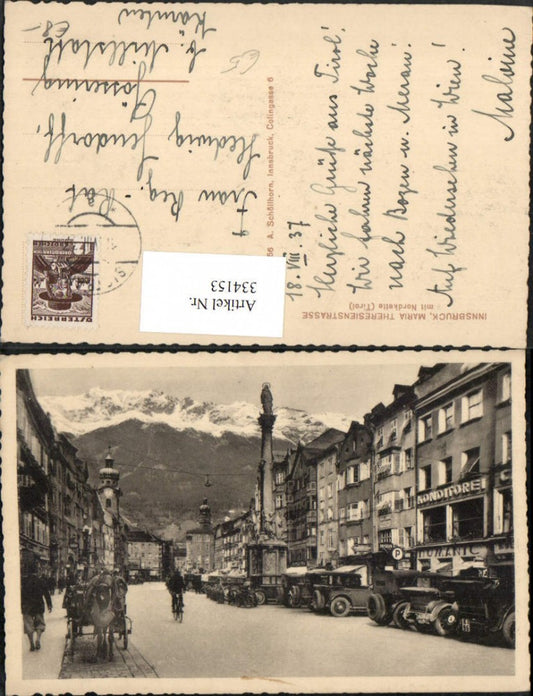 18. VIII. 37
Herzliche Grüße aus Tirol!
Wir fahren nächste Woche
nach Bozen u. Meran.
Auf Wiedersehen in Wien!
Malvine
Frau Reg.-Rat
Hedwig
Gössering
b. Millstatt
Kärnten
A. Schöllhorn, Innsbruck, Colingasse 6
INNSBRUCK, MARIA THERESIENSTRASSE
mit Nordkette (Tirol)
Artikel Nr.
334153
ÖSTERREICH
KONDITOREI
P